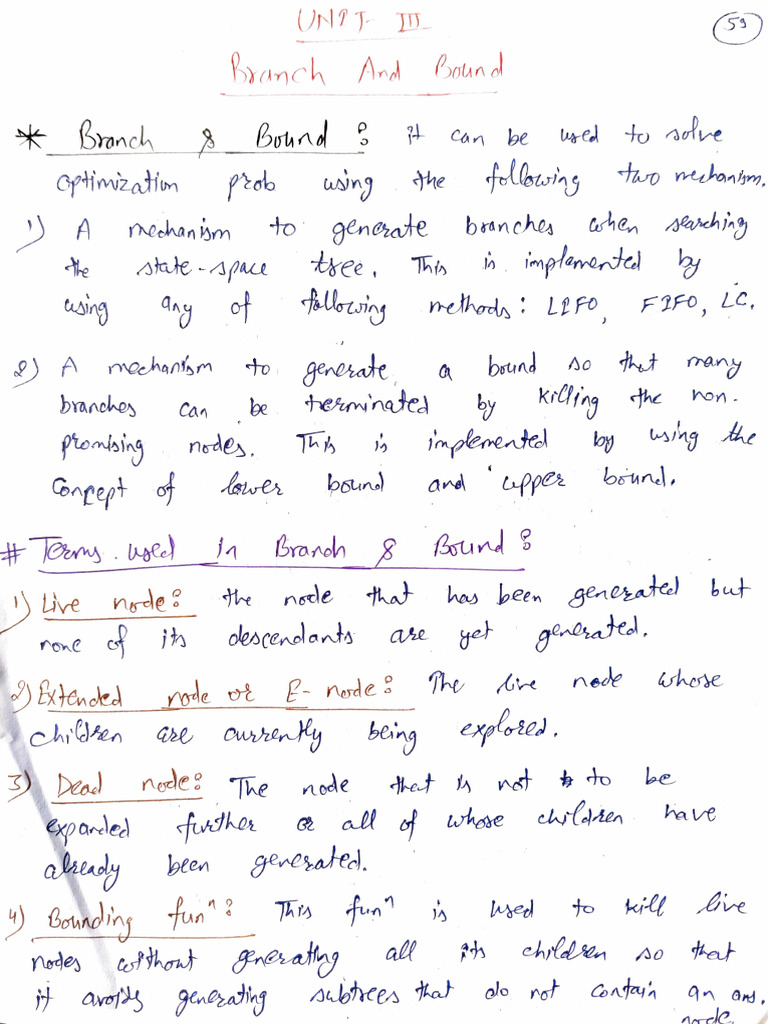 UNIT-III
59
Branch And Bound
* Branch & Bound: it can be used to solve
optimization prob using the following two mechanism.
1) A mechanism to generate branches when searching
the state-space tree. This is implemented by
using any of following methods: LIFO, FIFO, LC.
2) A mechanism to generate a bound so that many
branches can be terminated by killing the non-
promising nodes. This is implemented by using the
Concept of lower bound and upper bound.
# Terms used in Branch & Bound:
1) Live node: the node that has been generated but
none of its descendants are yet generated.
2) Extended node or E-node: The live node whose
children are currently being explored.
3) Dead node: The node that is not to be
expanded further or all of whose children have
already been generated.
4) Bounding funⁿ: This funⁿ is used to kill live
nodes without generating all its children so that
it avoids generating subtrees that do not contain an ans.
node.